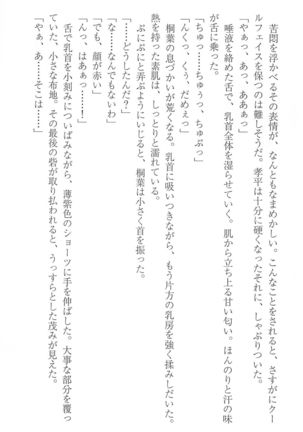 苦悶を浮かべるその表情が、なんともなまめかしい。こんなことをされると、さすがにクー
ルフェイスを保つのは難しそうだ。孝平は十分に硬くなったそれに、しゃぶりついた。
「やぁっ、あっ、ああぁっ」
「ちゅっ……ちゅうぅっ、ちゅぷっ」
唾液を絡めた舌で、乳首全体を湿らせていく。肌から立ち上る甘い匂い。ほんのりと汗の味
が舌に乗った。
「んくっ、くぅ、だめぇっ」
桐葉の息づかいが荒くなる。乳首に吸いつきながら、もう片方の乳房を強く揉みしだいた。
熱を持った素肌は、しっとりと濡れている。
ぷにぷにと弄ぶようにいじると、桐葉は小さく首を振った。
「……どうしたんだ？」
「な……なんでもないわ」
「でも、顔が赤い」
「んっ、はあぁっ……！」
舌で乳首を小刻みについばみながら、薄紫色のショーツに手を伸ばした。大事な部分を覆っ
ていた、小さな布地。その最後の砦が取り払われると、うっすらとした茂みが見えた。
「やぁ、あ……そこは……」